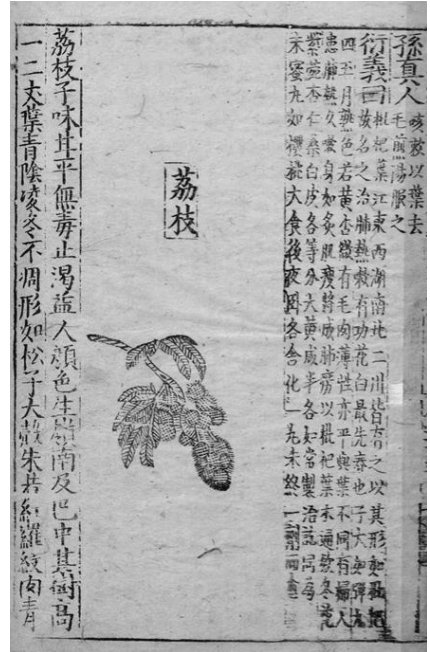 孫真人
咳嗽以葉去
毛煎湯服之
衍義曰
枇杷葉江東西湖南北二川皆有之以其形如枇杷
故名之治肺熱嗽有功花白最先春也子大如彈丸
四五月熟色若黃杏微有毛肉薄性亦平與葉不同有婦人
患肺熱久嗽身如炙肌瘦將成肺癆以枇杷葉木通款冬花
紫菀杏仁桑白皮各等分大黃減半各如常製治訖同為
末蜜丸如櫻桃大食後夜臥各含化一丸未終一劑而愈
荔枝
荔枝子味甘平無毒止渴益人顏色生嶺南及巴中其樹高
一二丈葉青陰凌冬不凋形如松子大殼朱若紅羅紋肉青